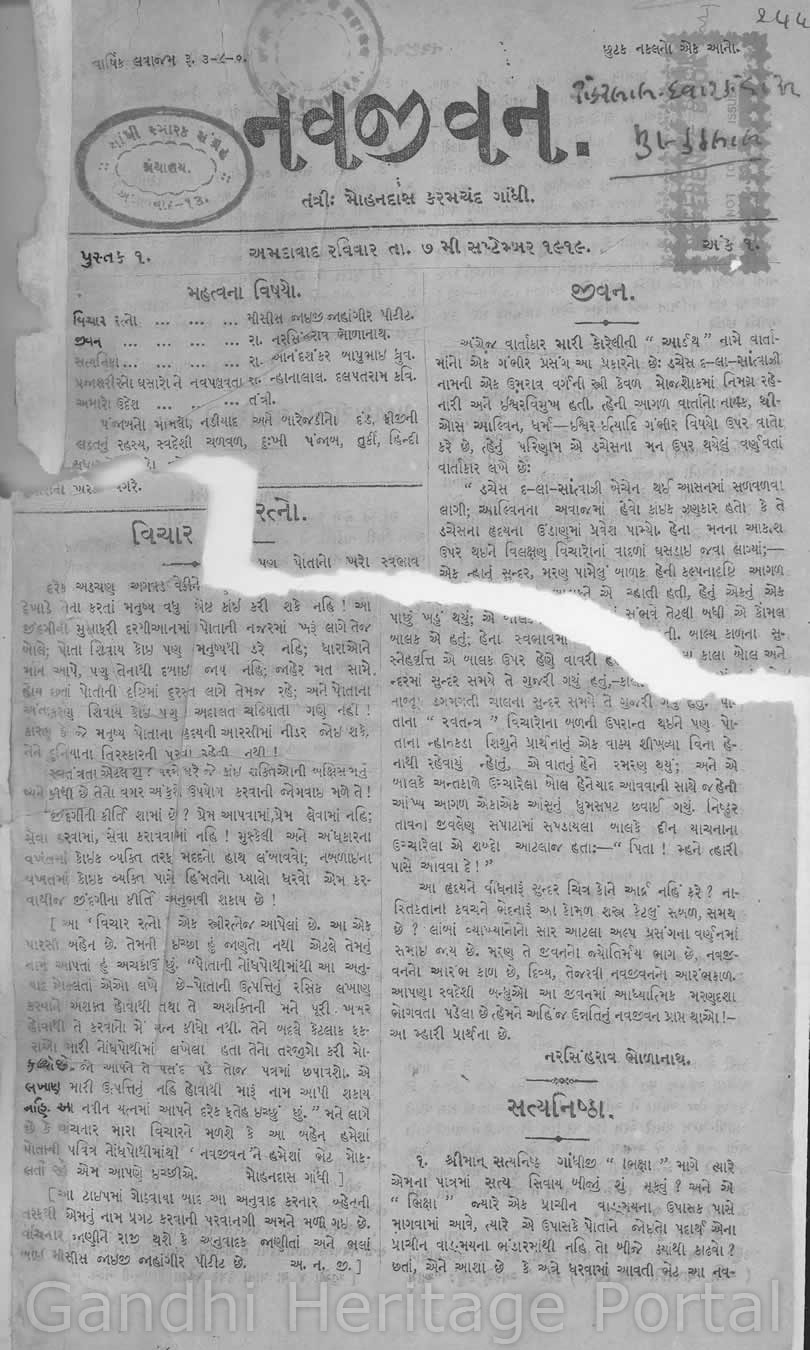 ૨૫૫
વાર્ષિક લવાજમ રૂ. ૩-૮-૦.
છુટક નકલનો એક આનો.
નવજીવન.
ગાંધી સ્મારક સંગ્રહ
ગ્રંથાલય.
તંત્રી: મોહનદાસ કરમચંદ ગાંધી.
પુસ્તક ૧.
અમદાવાદ રવિવાર તા. ૭ મી સપ્ટેમ્બર ૧૯૧૯.
અંક ૧.
મહત્વના વિષયો.
વિચાર રત્નો ... ... ... મીસીસ જાઇજી જાહાંગીર પીટીટ.
જીવન ... ... ... રા. નરસિંહરાવ ભોળાનાથ.
સત્યનિષ્ઠા... ... ... રા. આનંદશંકર બાપુભાઇ ધ્રુવ.
પ્રજાશરીરનો ઘસારો ને નવપલ્લવતા રા. ન્હાનાલાલ. દલપતરામ કવિ.
અમારો ઉદેશ ... ... તંત્રી.
પંજાબનો મામલો, નડીયાદ અને બારેજડીનો દંડ, ફીજીની
લડતનું રહસ્ય, સ્વદેશી ચળવળ, દુઃખી પંજાબ, તુર્કી, હિન્દી
વગરે.
વિચાર રત્નો.
પણ પોતાનો ખરો સ્વભાવ
દરેક અડચણ અગવડ વેઠીને
દેખાડે તેના કરતાં મનુષ્ય વધુ શ્રેષ્ઠ કાંઈ કરી શકે નહિ ! આ
જીંદગીની મુસાફરી દરમીઆનમાં પોતાની નજરમાં ખરૂં લાગે તેજ
બોલે; પોતા શિવાય કોઇ પણ મનુષ્યથી ડરે નહિ; ધારાઓને
માન આપે, પણ તેનાથી દબાઇ જાય નહિ; જાહેર મત સામે
હોય છતાં પોતાની દ્રષ્ટિમાં દુરસ્ત લાગે તેમજ રહે; અને પોતાના
અંતઃકરણ શિવાય કોઇ પણ અદાલત ચઢિયાતી ગણે નહી !
કારણ કે જે મનુષ્ય પોતાના હૃદયની આરસીમાં નીડર જોઇ શકે,
તેને દુનિયાના તિરસ્કારની પરવા રહેતી નથી !
સ્વતંત્રતા એટલે શું ? પરમેશ્વરે જે કાંઇ શક્તિઓની બક્ષિસ મનુ-
ષ્યને કીધી છે તેનો વગર અંકુશે ઉપયોગ કરવાની જોગવાઇ મળે તે !
જીંદગીની કીર્તિ શામાં છે ? પ્રેમ આપવામાં, પ્રેમ લેવામાં નહિ;
સેવા કરવામાં, સેવા કરાવવામાં નહિ ! મુસ્કેલી અને અંધકારના
વખતમાં કોઇક વ્યક્તિ તરફ મદદનો હાથ લંબાવવો; નબળાઇના
વખતમાં કોઇક વ્યક્તિ પાસે હિંમતનો પ્યાલો ધરવો એમ કર-
વાથીજ જીંદગીના કીર્તિ અનુભવી શકાય છે !
[ આ ‘ વિચાર રત્નો ’ એક સ્ત્રીરત્નેજ આપેલાં છે. આ એક
પારસી બહેન છે. તેમની ઇચ્છા હું જાણતો નથી એટલે તેમનું
નામ આપતાં હું અચકાઉં છું. “પોતાની નોંધપોથીમાંથી આ અનુ-
વાદ મોકલતાં એઓ લખે છે–પોતાની ઉત્પત્તિનું રસિક લખાણ
કરવાને અશક્ત હોવાથી તથા તે અશક્તિની મને પૂરી ખબર
હોવાથી તે કરવાનો મેં યત્ન કીધો નથી. તેને બદલે કેટલાક ફક-
રાઓ મારી નોંધપોથીમાં લખેલા હતા તેનો તરજુમો કરી મો-
કલ્યો છે. જો આપને તે પસંદ પડે તોજ પત્રમાં છપાવશો. એ
લખાણ મારી ઉત્પત્તિનું નહિ હોવાથી મારૂં નામ આપી શકાય
નહિ. આ નવીન યત્નમાં આપને દરેક ફતેહ ઇચ્છું છું. ” મને લાગે
છે કે વાંચનાર મારા વિચારને મળશે કે આ બહેન હંમેશાં
પોતાની પવિત્ર નોંધપોથીમાંથી ‘ નવજીવન ’ને હંમેશાં ભેટ મોક-
લતાં રહે એમ આપણે ઇચ્છીએ. મોહનદાસ ગાંધી ]
[ આ ટાઇપમાં ગોઠવાયા બાદ આ અનુવાદ કરનાર બહેનની
તરફથી એમનું નામ પ્રગટ કરવાની પરવાનગી અમને મળી ગઇ છે.
વાંચનાર જાણીને રાજી થશે કે અનુવાદક જાણીતાં અને ભલાં
બાઇ મીસીસ જાઇજી જાહાંગીર પીટીટ છે. અ. ન. જી. ]
જીવન.
અંગ્રેજ વાર્તાકાર મારી કોરેલીની “ આર્ડાથ ” નામે વાર્તા-
માંનો એક ગંભીર પ્રસંગ આ પ્રકારનો છે: ડચેસ દ–લા–સાંત્વાઝી
નામની એક ઉમરાવ વર્ગની સ્ત્રી કેવળ મોજશોકમાં નિમગ્ન રહે-
નારી અને ઈશ્વરવિમુખ હતી. ત્હેની આગળ વાર્તાનો નાયક, થી-
ઓસ આલ્વિન, ધર્મ—ઈશ્વર–ઈત્યાદિ ગંભીર વિષયો ઉપર વાતો
કરે છે, ત્હેનું પરિણામ એ ડચેસના મન ઉપર થયેલું વર્ણવતાં
વાર્તાકાર લખે છે:
“ ડચેસ દ–લા–સાંત્વાઝી બેચેન થઈ આસનમાં સળવળવા
લાગી; આલ્વિનના અવાજમાં હેવો કાંઇક ઝણકાર હતો કે તે
ડચેસના હૃદયના ઉંડાણમાં પ્રવેશ પામ્યો. હેના મનના આકાશ
ઉપર થઇને વિલક્ષણ વિચારોનાં વાદળાં ઘસડાઇ જવા લાગ્યાં;—
એક ન્હાનું સુન્દર, મરણ પામેલું બાળક હેની કલ્પનાદૃષ્ટિ આગળ
એ ચ્હાતી હતી, હેનું એકનું એક
પાછું ખડું થયું; એ બાલક સંભવે તેટલી બધી એ કોમલ
બાલક એ હતું; હેના સ્વભાવમાં તી. બાલ્ય કાળના સુ-
સ્નેહવૃત્તિ એ બાલક ઉપર હેણે વાવરી કાલા બોલ અને
ન્દરમાં સુન્દર સમયે તે ગુજરી ગયું હતું,–કાલા
નાજૂક ડગમગતી ચાલના સુન્દર સમયે તે ગુજરી ગયું હતું. પો-
તાના “ સ્વતન્ત્ર ” વિચારોના બળની ઉપરાન્ત થઇને પણ પો-
તાના ન્હાનકડા શિશુને પ્રાર્થનાનું એક વાક્ય શીખવ્યા વિના હે-
નાથી રહેવાયું ન્હોતું, એ વાતનું હેને સ્મરણ થયું; અને એ
બાલકે અન્તકાળે ઉચ્ચારેલા બોલ હેને યાદ આવવાની સાથે જ હેની
આંખ્ય આગળ એકાએક આંસુનું ધુમસપટ છવાઈ ગયું. નિષ્ઠુર
તાવના જીવલેણ સપાટામાં સપડાયલા બાલકે દીન યાચનાના
ઉચ્ચારેલા એ શબ્દો આટલાજ હતા:—“ પિતા ! મ્હને ત્હારી
પાસે આવવા દે ! ”
આ હૃદયને વીંધનારૂં સુન્દર ચિત્ર કોને આર્દ્ર નહિં કરે ? ના-
સ્તિકતાના કવચને ભેદનારૂં આ કોમળ શસ્ત્ર કેટલું સબળ, સમર્થ
છે ? લાંબાં વ્યાખ્યાનોનો સાર આટલા અલ્પ પ્રસંગના વર્ણનમાં
સમાઇ જાય છે. મરણ તે જીવનનો જ્યોતિર્મય ભાગ છે, નવજી-
વનનો આરંભ કાળ છે, દિવ્ય, તેજસ્વી નવજીવનનો આરંભકાળ.
આપણા સ્વદેશી બન્ધુઓ આ જીવનમાં આધ્યાત્મિક મરણદશા
ભોગવતા પડેલા છે ત્હેમને અહિંજ ઉન્નતિનું નવજીવન પ્રાપ્ત થાઓ !–
આ મ્હારી પ્રાર્થના છે.
નરસિંહરાવ ભોળાનાથ.
સત્યનિષ્ઠા.
૧. શ્રીમાન્ સત્યનિષ્ઠ ગાંધીજી “ ભિક્ષા ” માગે ત્યારે
એમના પાત્રમાં સત્ય સિવાય બીજું શું મૂકવું ? અને એ
“ ભિક્ષા ” જ્યારે એક પ્રાચીન વાઙ્મયના ઉપાસક પાસે
માગવામાં આવે, ત્યારે એ ઉપાસકે પોતાને જોઇતો પદાર્થ એના
પ્રાચીન વાઙ્મયના ભંડારમાંથી નહિ તો બીજે ક્યાંથી કાઢવો ?
છતાં, એને આશા છે કે અત્રે ધરવામાં આવતી ભેટ આ નવ-
Gandhi Heritage Portal